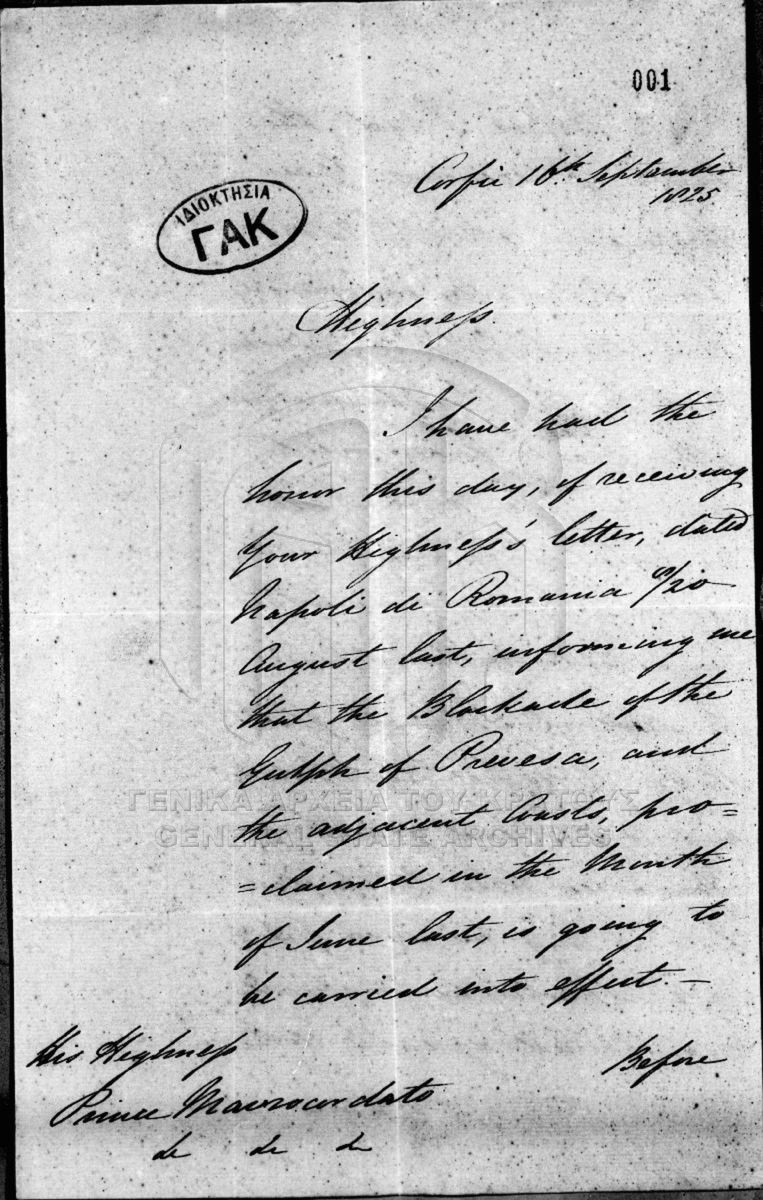 001
Corfu 16th September
1825
ΙΔΙΟΚΤΗΣΙΑ
ΓΑΚ
Highness.
I have had the
honor this day, of receiving
Your Highness's letter, dated
Napoli di Romania 8/20
August last, informing me
that the Blockade of the
Gulph of Prevesa, and
the adjacent Coasts, pro=
=claimed in the Month
of June last, is going to
be carried into effect.—
ΓΕΝΙΚΑ ΑΡΧΕΙΑ ΤΟΥ ΚΡΑΤΟΥΣ
GENERAL STATE ARCHIVES
His Highness
Before
Prince Mavrocordato
&c &c &c